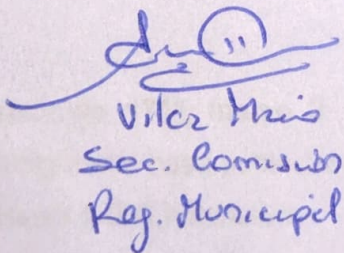 Vilca
Sec. Comisión
Reg. Municipal